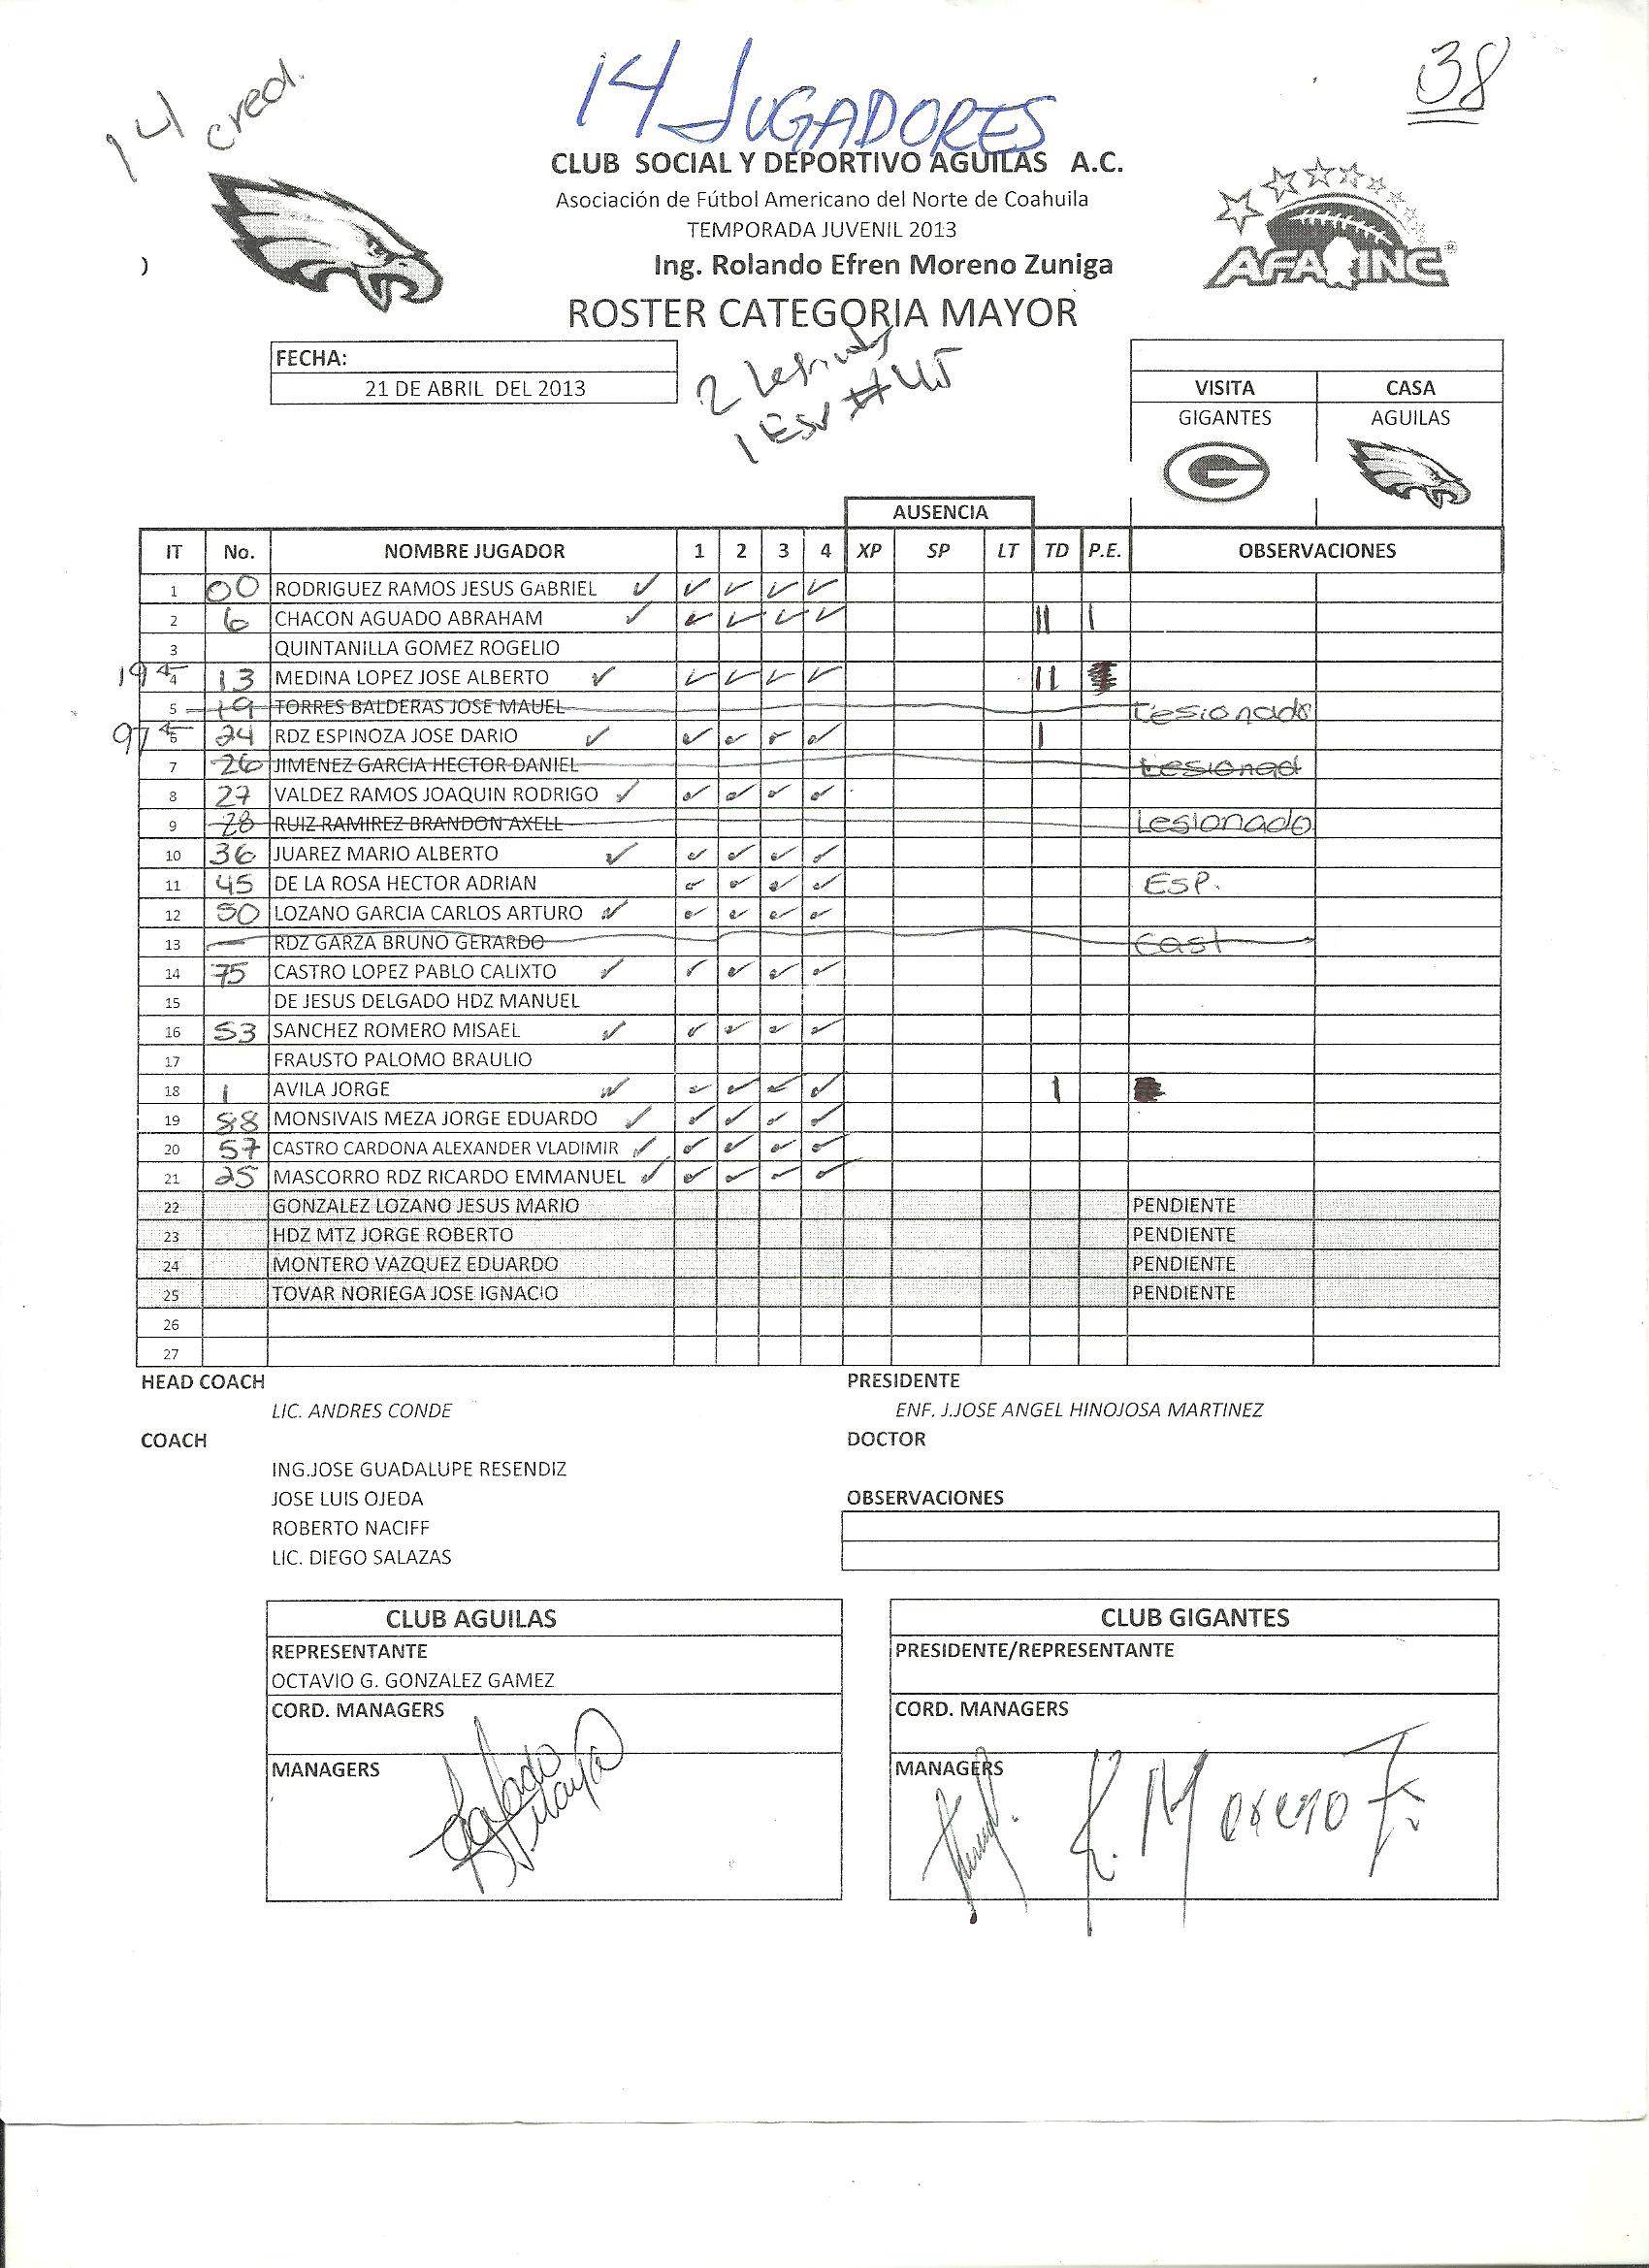 14 cred.
14 JUGADORES
38
CLUB SOCIAL Y DEPORTIVO AGUILAS A.C.
Asociación de Fútbol Americano del Norte de Coahuila
TEMPORADA JUVENIL 2013
Ing. Rolando Efren Moreno Zuniga
AFAINC ®
ROSTER CATEGORIA MAYOR
FECHA:
21 DE ABRIL DEL 2013
2
1 Esp #45
VISITA CASA
GIGANTES AGUILAS
G
AUSENCIA
IT No. NOMBRE JUGADOR 1 2 3 4 XP SP LT TD P.E. OBSERVACIONES
1 00 RODRIGUEZ RAMOS JESUS GABRIEL ✓ ✓ ✓ ✓ ✓
2 6 CHACON AGUADO ABRAHAM ✓ ✓ ✓ ✓ ✓ II I
3 QUINTANILLA GOMEZ ROGELIO
19 4 13 MEDINA LOPEZ JOSE ALBERTO ✓ ✓ ✓ ✓ ✓ II
5 19 TORRES BALDERAS JOSE MAUEL Lesionado
97 6 24 RDZ ESPINOZA JOSE DARIO ✓ ✓ ✓ ✓ ✓ I
7 26 JIMENEZ GARCIA HECTOR DANIEL Lesionad
8 27 VALDEZ RAMOS JOAQUIN RODRIGO ✓ ✓ ✓ ✓ ✓
9 28 RUIZ RAMIREZ BRANDON AXELL Lesionado
10 36 JUAREZ MARIO ALBERTO ✓ ✓ ✓ ✓ ✓
11 45 DE LA ROSA HECTOR ADRIAN ✓ ✓ ✓ ✓ ESP.
12 50 LOZANO GARCIA CARLOS ARTURO ✓ ✓ ✓ ✓ ✓
13 RDZ GARZA BRUNO GERARDO Cast
14 75 CASTRO LOPEZ PABLO CALIXTO ✓ ✓ ✓ ✓ ✓
15 DE JESUS DELGADO HDZ MANUEL
16 53 SANCHEZ ROMERO MISAEL ✓ ✓ ✓ ✓ ✓
17 FRAUSTO PALOMO BRAULIO
18 1 AVILA JORGE ✓ ✓ ✓ ✓ ✓ I
19 88 MONSIVAIS MEZA JORGE EDUARDO ✓ ✓ ✓ ✓ ✓
20 57 CASTRO CARDONA ALEXANDER VLADIMIR ✓ ✓ ✓ ✓ ✓
21 25 MASCORRO RDZ RICARDO EMMANUEL ✓ ✓ ✓ ✓ ✓
22 GONZALEZ LOZANO JESUS MARIO PENDIENTE
23 HDZ MTZ JORGE ROBERTO PENDIENTE
24 MONTERO VAZQUEZ EDUARDO PENDIENTE
25 TOVAR NORIEGA JOSE IGNACIO PENDIENTE
26
27
HEAD COACH PRESIDENTE
LIC. ANDRES CONDE ENF. J.JOSE ANGEL HINOJOSA MARTINEZ
COACH DOCTOR
ING.JOSE GUADALUPE RESENDIZ
JOSE LUIS OJEDA OBSERVACIONES
ROBERTO NACIFF
LIC. DIEGO SALAZAS
CLUB AGUILAS CLUB GIGANTES
REPRESENTANTE PRESIDENTE/REPRESENTANTE
OCTAVIO G. GONZALEZ GAMEZ
CORD. MANAGERS CORD. MANAGERS
MANAGERS MANAGERS
R. Moreno